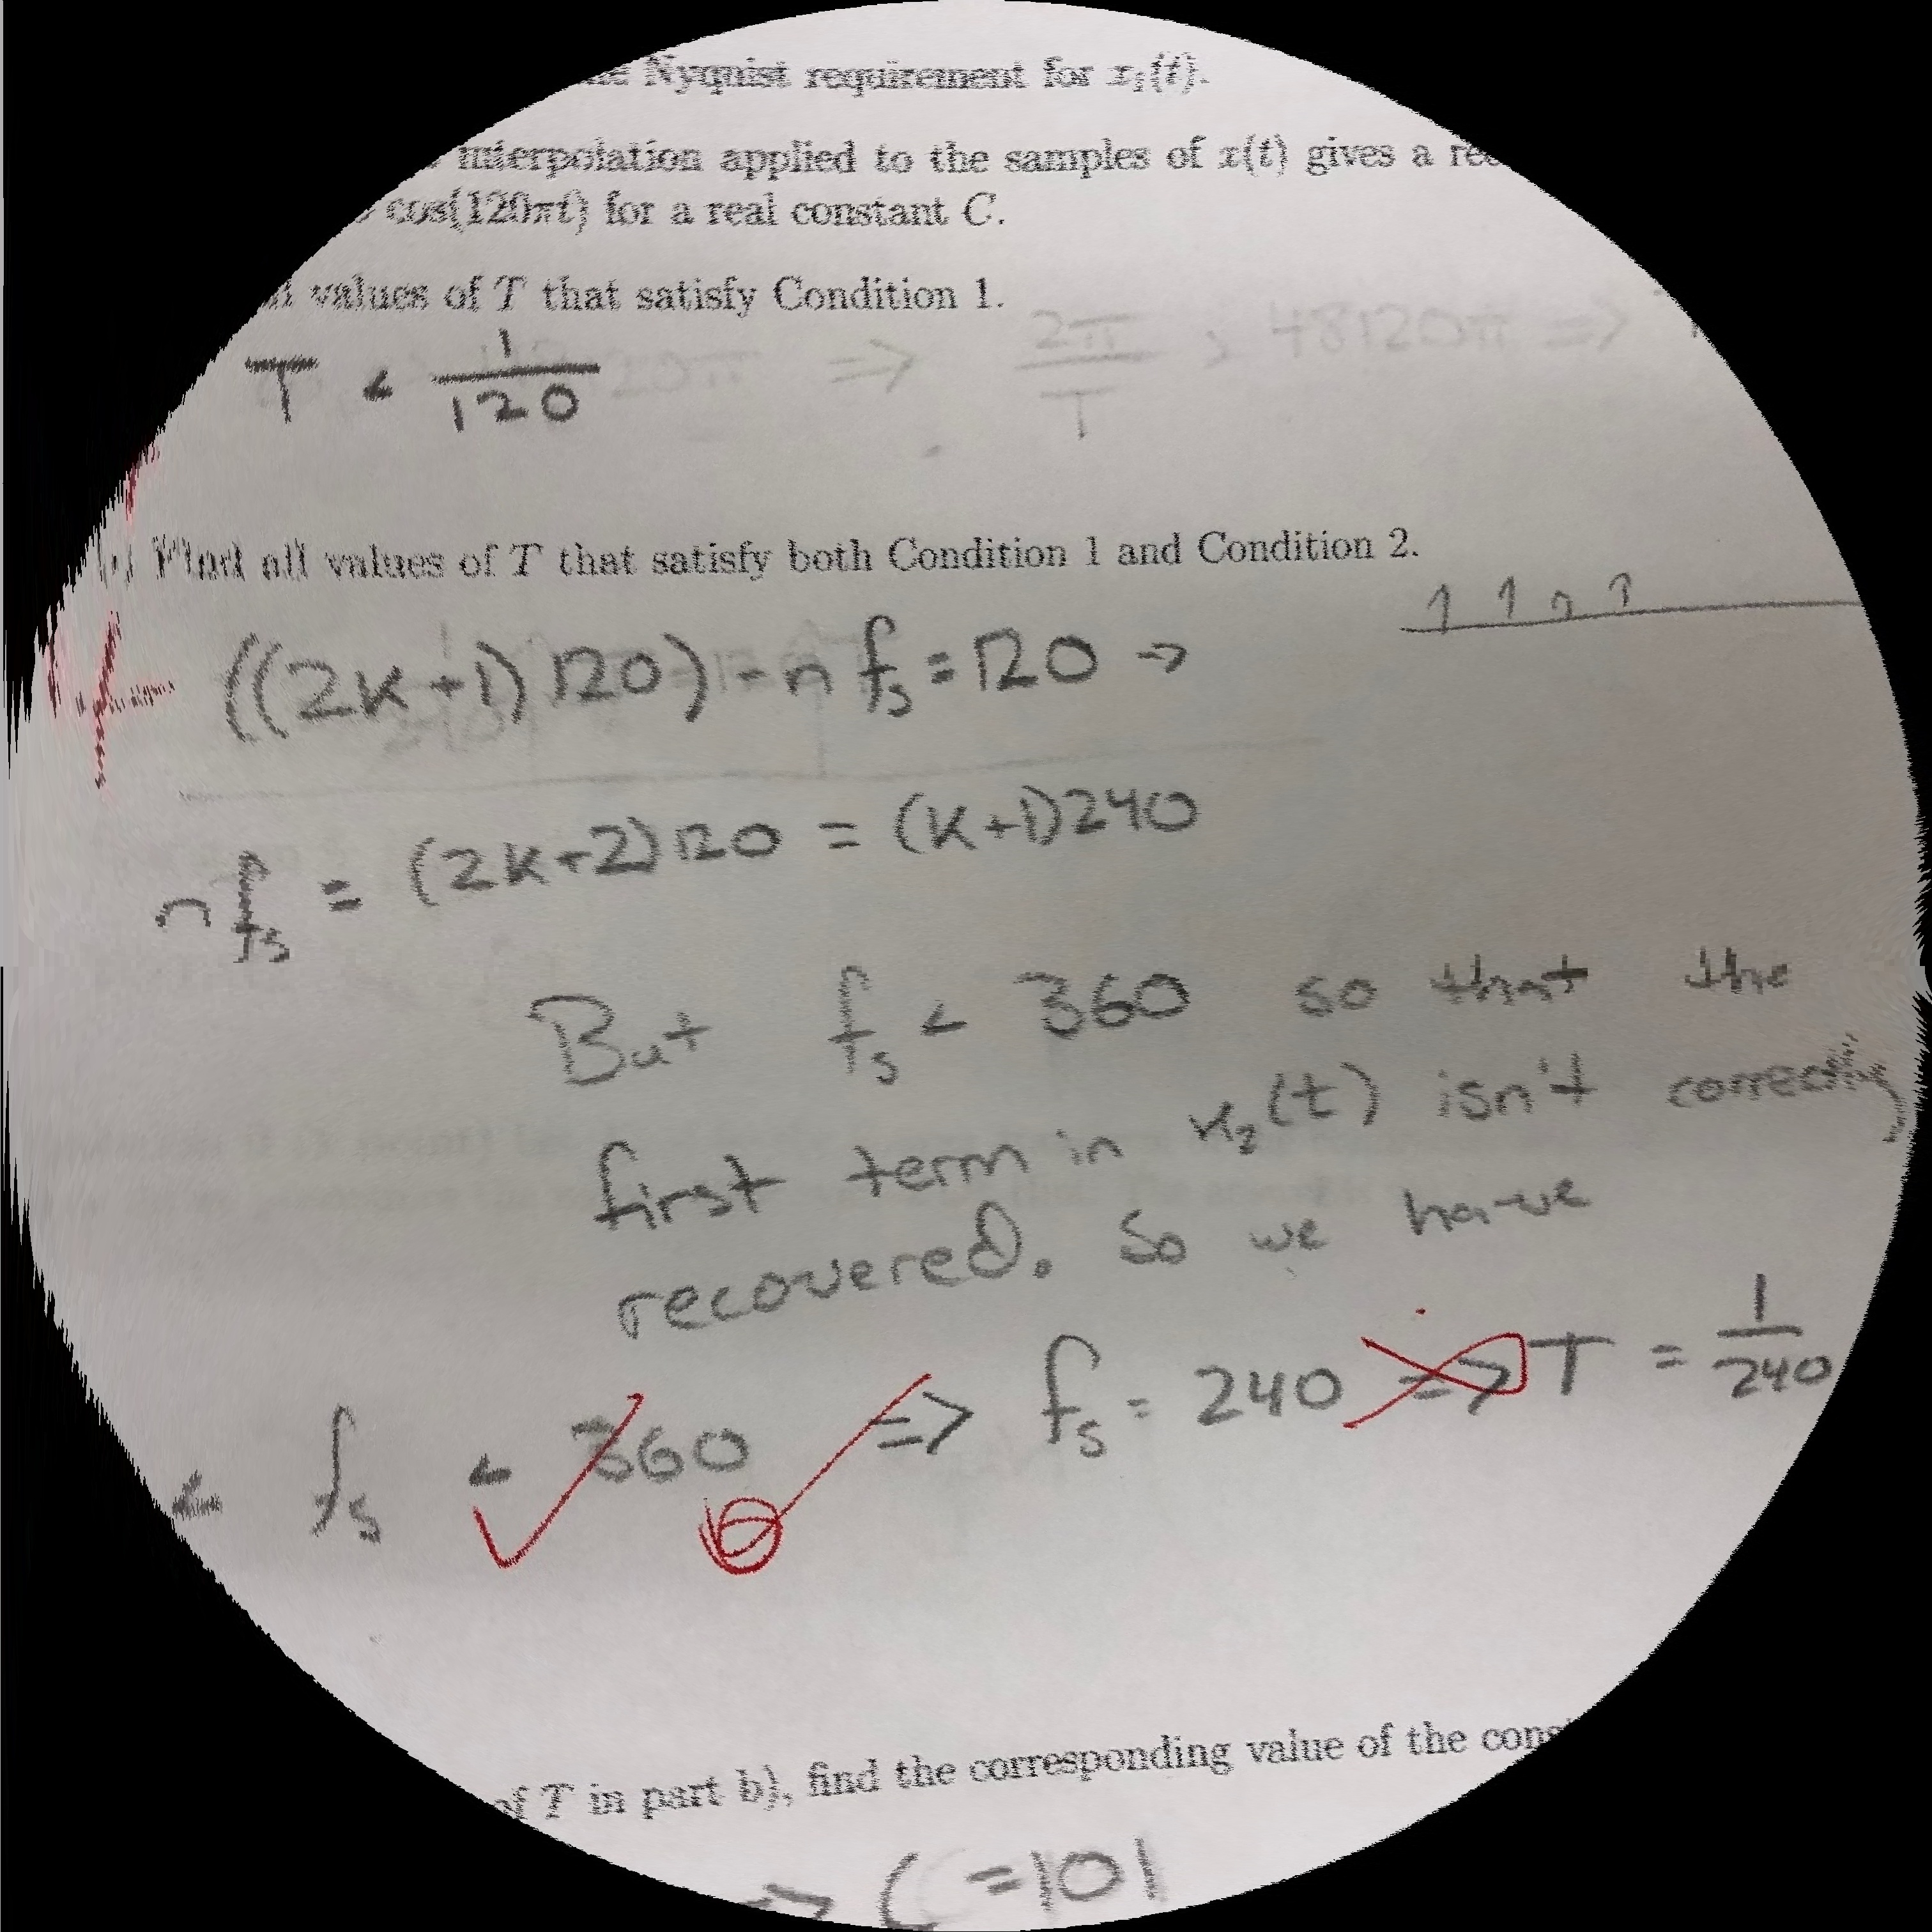 Nyquist requirement for x₁(t).
interpolation applied to the samples of x(t) gives a
cos(120πt) for a real constant C.
values of T that satisfy Condition 1.
T < 1/120
2π/T > 48120π =>
Find all values of T that satisfy both Condition 1 and Condition 2.
((2k+1)120) - n fs = 120 →
n fs = (2k+2)120 = (k+1)240
But fs < 360 so that the
first term in x₂(t) isn't correctly
recovered. So we have
< fs < 360 => fs = 240 => T = 1/240
of T in part b), find the corresponding value of the
→ C = 101